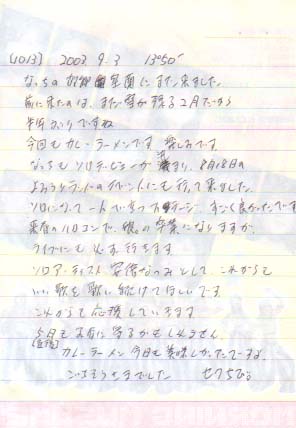 (1013) 2003 9.3 13:50
なっちの故郷室蘭にまた来ました
前に来たのは、まだ雪が残る2月だから
半年ぶりですね
今回もカレーラーメンです 楽しみです。
なっちもソロデビューが決まり、8月18日の
よみうりランドのイベントにも行って来ました。
ソロになって一人で立つステージ、すごく良かったです。
来春のハロコンで、娘。の卒業になりますが、
ライブにも必ず行きます。
ソロアーティスト 安倍なつみとして、これからも
いい歌を歌い続けてほしいです。
これからも応援していきます
今日も
カレーラーメン 今日も美味しかったですよ。
ごちそうさまでした